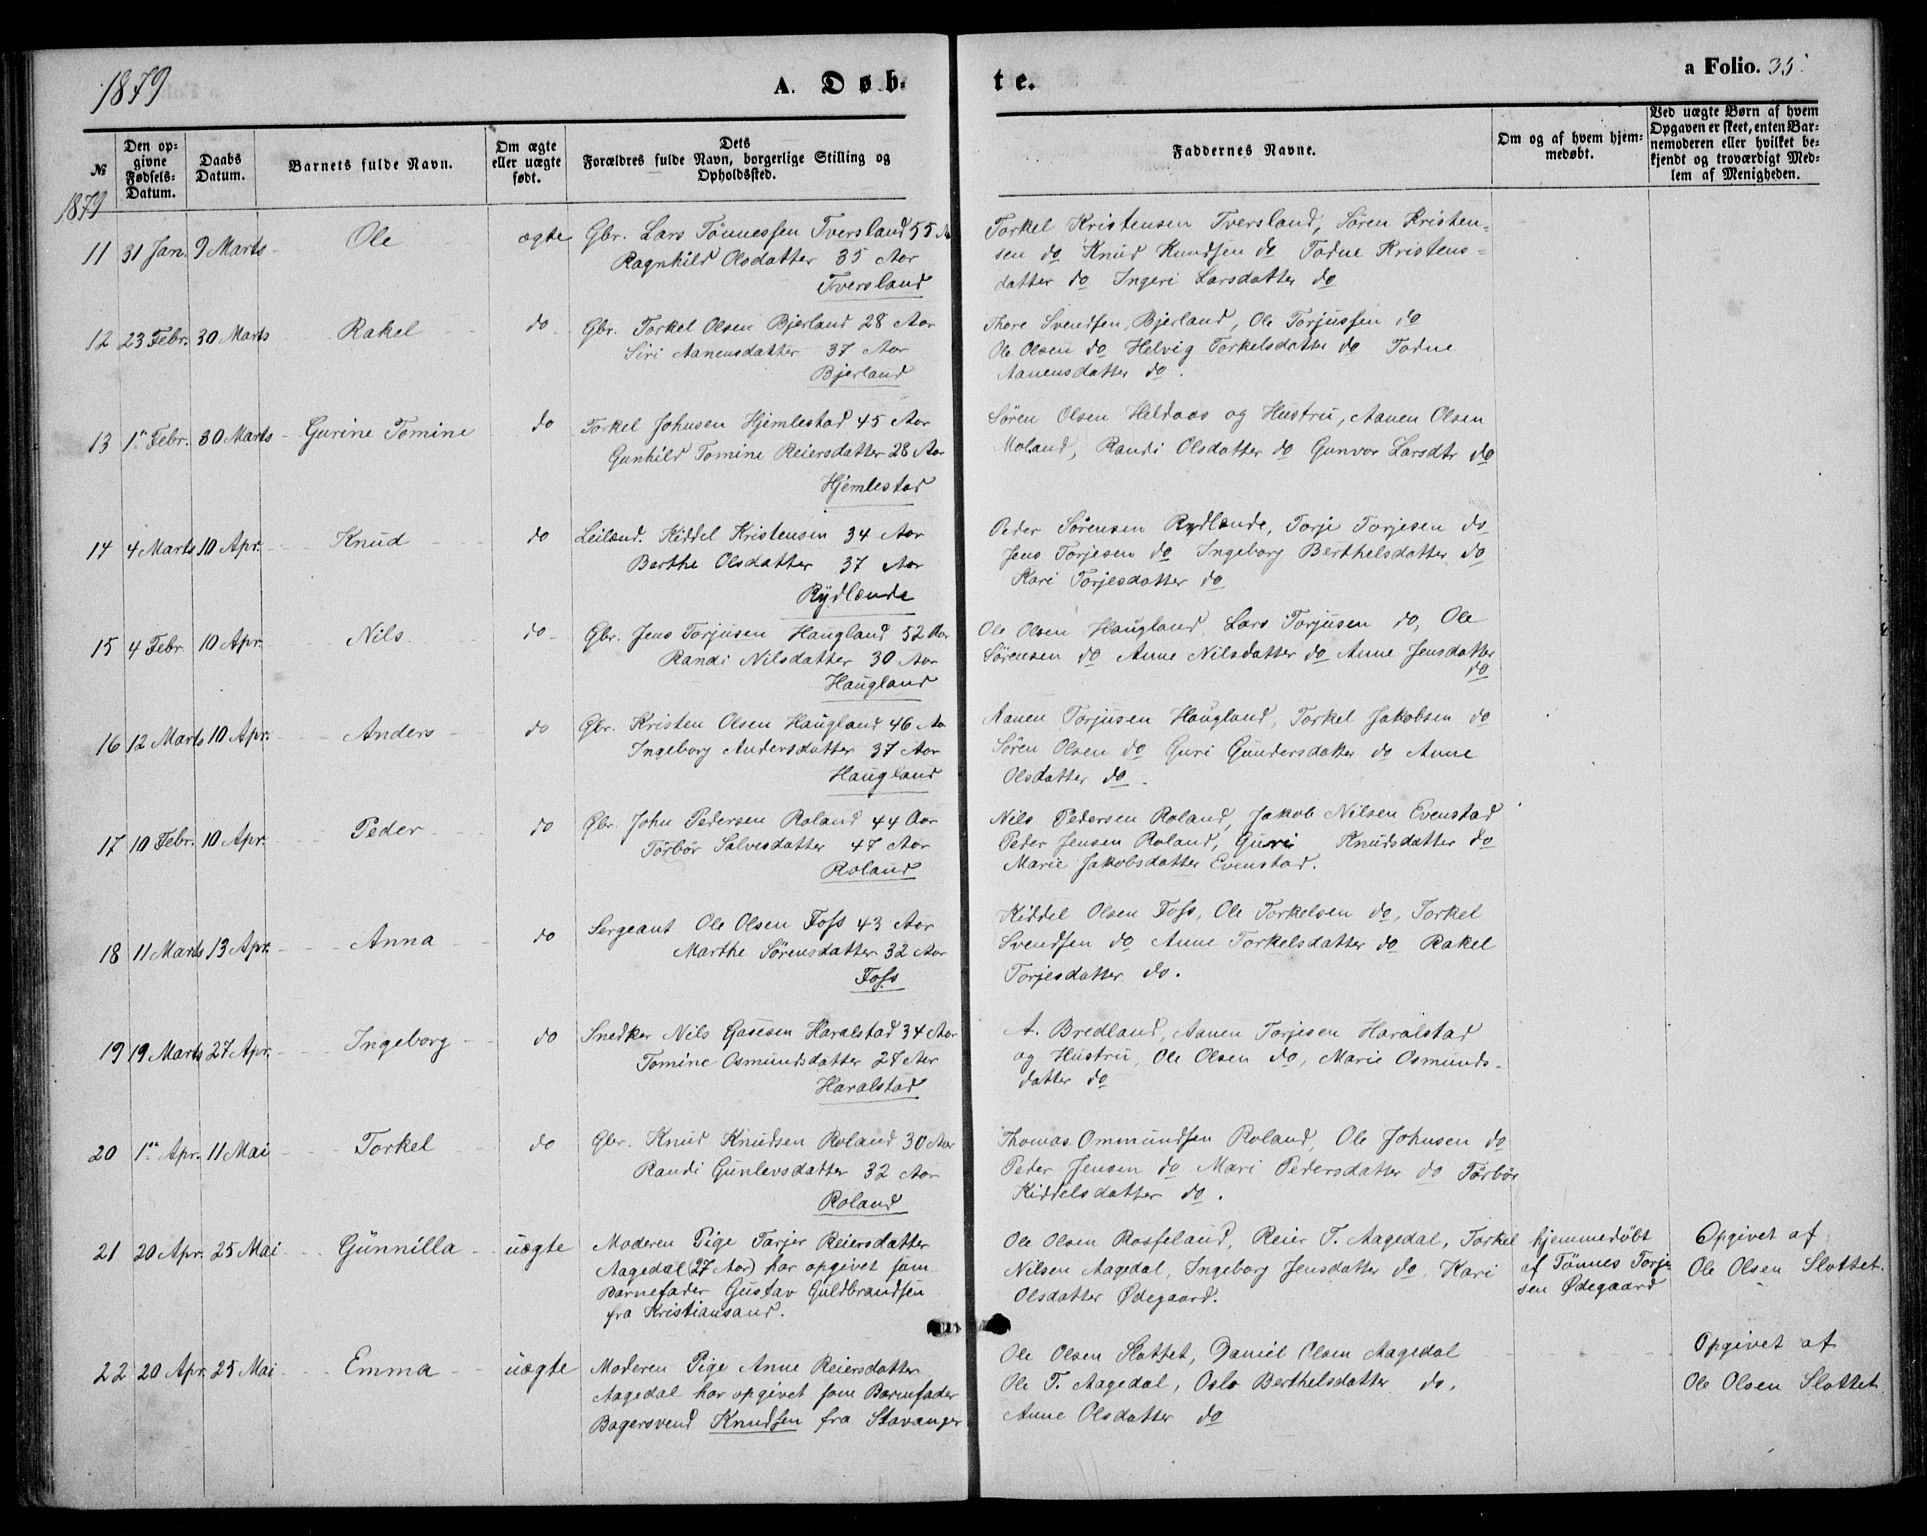 1879
A. Døb-
te.
a Folio. 35.
№
Den op-
givne
Fødsels-
Datum.
Daabs
Datum.
Barnets fulde Navn.
Om ægte
eller uægte
født.
Dets
Forældres fulde Navn, borgerlige Stilling og
Opholdssted.
Faddernes Navne.
Om og af hvem hjem-
medøbt.
Ved uægte Børn af hvem
Opgaven er skeet, enten Bar-
nemoderen eller hvilket be-
kjendt og troværdigt Med-
lem af Menigheden.
1879
11 31 Jan. 9 Marts Ole ægte Gbr. Lars Tönnessen Tversland 55 A
Ragnhild Olsdatter 35 Aar
Tversland
Torkel Kristensen Tversland, Sören Kristen-
sen do Knud Knudsen do Todne Kristens-
datter do Ingeri Larsdatter do
12 23 Febr. 30 Marts Rakel do Gbr. Torkel Olsen Bjerland 28 Aar
Siri Aanensdatter 37 Aar
Bjerland
Thore Svendsen Bjerland, Ole Torjussen do
Ole Olsen do Helvig Torkelsdatter do Todne
Aanensdatter do.
13 1ste Febr. 30 Marts Gurine Tomine do Torkel Johnsen Hjemlestad 45 Aar
Gunhild Tomine Reiersdatter 28 Aar
Hjemlestad
Sören Olsen Heldaas og Hustru, Aanen Olsen
Moland, Randi Olsdatter do Gunvor Larsdtr do
14 4 Marts 10 Apr. Knud do Leilænd. Kiddel Kristensen 34 Aar
Berthe Olsdatter 37 Aar
Rydlende
Peder Sörensen Rydlende, Torje Torjesen do
Jens Torjesen do Ingeborg Berthelsdatter do
Kari Torjesdatter do
15 4 Febr. 10 Apr. Nils do Gbr. Jens Torjusen Haugland 52 Aar
Randi Nilsdatter 30 Aar
Haugland
Ole Olsen Haugland, Lars Torjusen do, Ole
Sörensen do Anne Nilsdatter do Anne Jensdatter
do
16 12 Marts 10 Apr. Anders do Gbr. Kristen Olsen Haugland 46 Aa
Ingeborg Andersdatter 37 Aar
Haugland
Aanen Torjusen Haugland, Torkel Jakobsen do
Sören Olsen do Guri Gundersdatter do Anne
Olsdatter do.
17 10 Febr. 10 Apr. Peder do Gbr. John Pedersen Roland 44 Aar
Törbör Salvesdatter 47 Aar
Roland
Nils Pedersen Roland, Jakob Nilsen Evenstad
Peder Jensen Roland, Guri Knudsdatter do
Marie Jakobsdatter Evenstad.
18 11 Marts 13 Apr. Anna do Sergeant Ole Olsen Foss 43 Aar
Marthe Sörensdatter 32 Aar
Foss
Kiddel Olsen Foss, Ole Torkelsen do, Torkel
Svendsen do Anne Torkelsdatter do Rakel
Torjesdatter do.
19 19 Marts 27 Apr. Ingeborg do Snedker Nils Gasesen Haralstad 34 Aar
Tomine Osmundsdatter 24 Aar
Haralstad
A. Bredland, Aanen Torjesen Haralstad
og Hustru, Ole Olsen do, Marie Osmunds-
datter do
20 1ste Apr. 11 Mai Torkel do Gbr. Knud Knudsen Roland 30 Aar
Randi Gunlevsdatter 32 Aar
Roland
Thomas Ommundsen Roland, Ole Johnsen do
Peder Jensen do Mari Pedersdatter do Törbör
Kiddelsdatter do.
21 20 Apr. 25 Mai Gunnilla uægte Moderen Pige Tarjer Reiersdatter
Aagedal (27 Aar) har opgivet som
Barnefader Gustav Guldbrandsen
fra Kristiansand.
Ole Olsen Rosseland, Reier T. Aagedal, Torkel
Nilsen Aagedal, Ingeborg Jensdatter do, Kari
Olsdatter Ødegaard.
hjemmedöbt
af Tönnes Torje-
sen Ødegaard
Opgivet af
Ole Olsen Slottet.
22 20 Apr. 25 Mai Emma uægte Moderen Pige Anne Reiersdatter
Aagedal har opgivet som Barnefader
Bagersvend Knudsen fra Stavanger
Ole Olsen Slottet, Daniel Olsen Aagedal
Ole T. Aagedal, Oslo Berthelsdatter do,
Anne Olsdatter do
Opgivet af
Ole Olsen Slottet